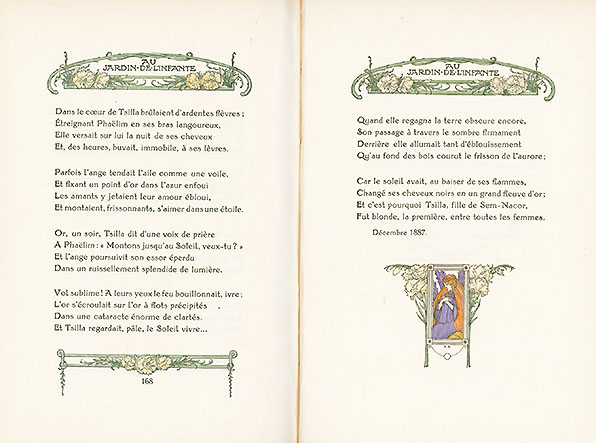 AU
JARDIN·DE·L'INFANTE
Dans le cœur de Tsilla brûlaient d'ardentes fièvres ;
Étreignant Phaëlim en ses bras langoureux,
Elle versait sur lui la nuit de ses cheveux
Et, des heures, buvait, immobile, à ses lèvres.
Parfois l'ange tendait l'aile comme une voile,
Et fixant un point d'or dans l'azur enfoui
Les amants y jetaient leur amour ébloui,
Et montaient, frissonnants, s'aimer dans une étoile.
Or, un soir, Tsilla dit d'une voix de prière
A Phaëlim : « Montons jusqu'au Soleil, veux-tu ? »
Et l'ange poursuivit son essor éperdu
Dans un ruissellement splendide de lumière.
Vol sublime ! A leurs yeux le feu bouillonnait, ivre ;
L'or s'écroulait sur l'or à flots précipités
Dans une cataracte énorme de clartés.
Et Tsilla regardait, pâle, le Soleil vivre...
168
AU
JARDIN·DE·L'INFANTE
Quand elle regagna la terre obscure encore,
Son passage à travers le sombre firmament
Derrière elle allumait tant d'éblouissement
Qu'au fond des bois courut le frisson de l'aurore ;
Car le soleil avait, au baiser de ses flammes,
Changé ses cheveux noirs en un grand fleuve d'or ;
Et c'est pourquoi Tsilla, fille de Sem-Nacor,
Fut blonde, la première, entre toutes les femmes.
Décembre 1887.